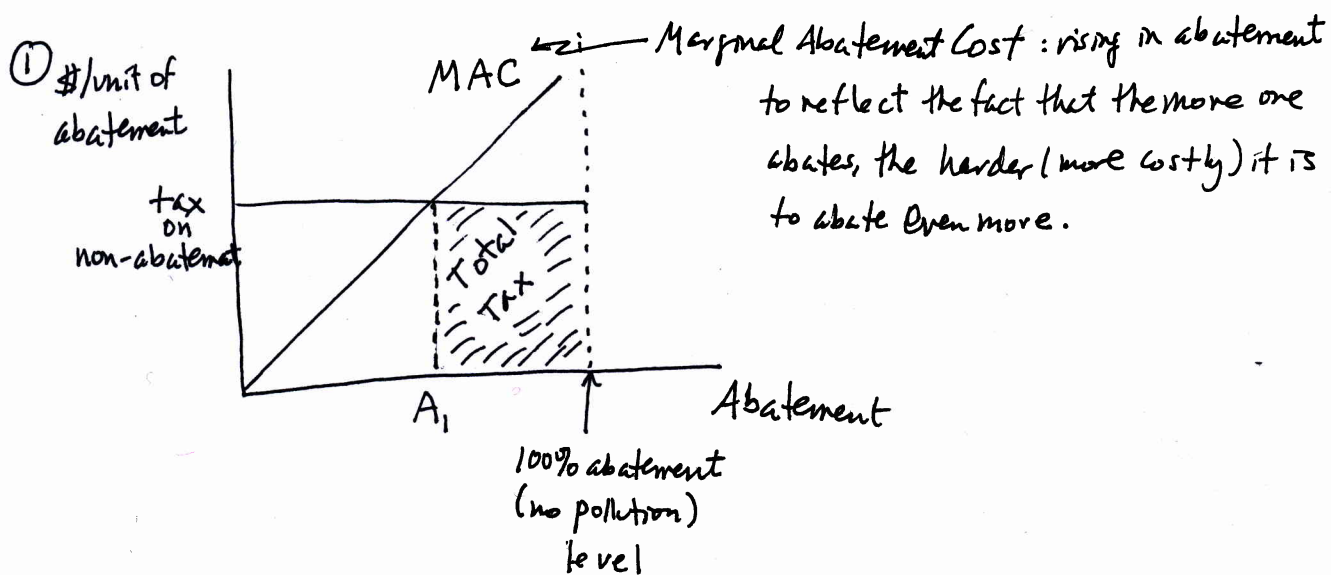 ①
$/unit of
abatement
MAC
Marginal Abatement Cost : rising in abatement
to reflect the fact that the more one
abates, the harder (more costly) it is
to abate even more.
tax
on
non-abatemat
Total
Tax
A₁
Abatement
100% abatement
(no pollution)
level